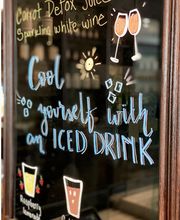 Carrot Detox Juice
Sparkling white wine
Cool
yourself with
an ICED DRINK
Raspberry